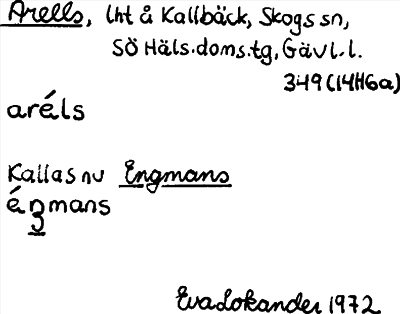 Arells, lht å Kallbäck, Skogs sn,
SÖ Häls.doms.tg, Gävl. l.
349 (14H6a)
aréls
Kallas nu Engmans
éŋmans
Eva Lokander 1972